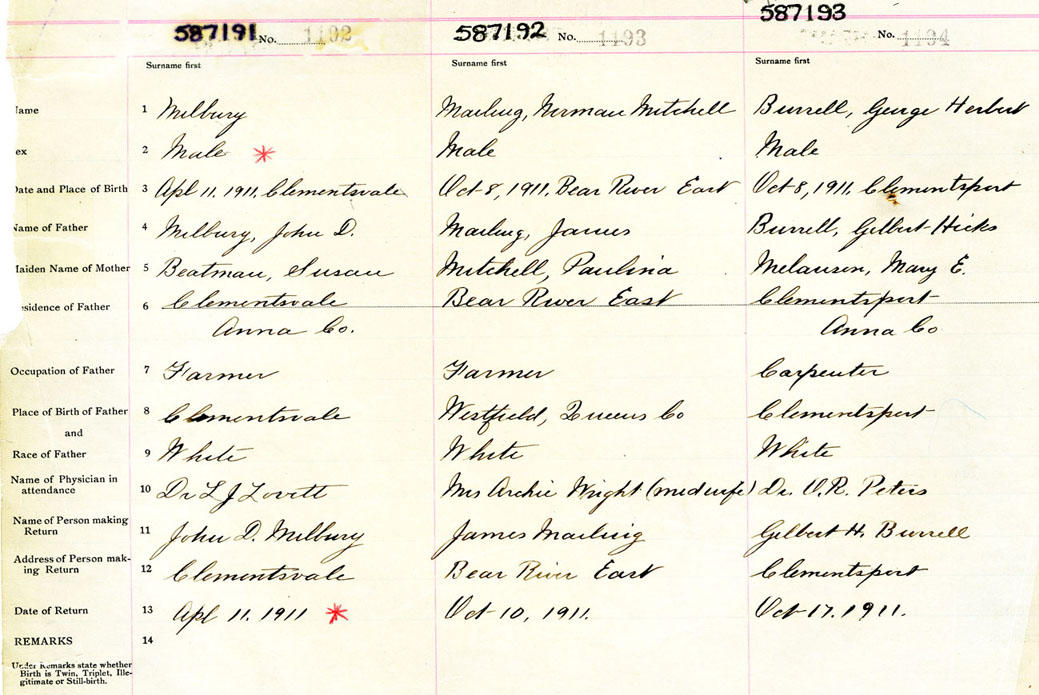 587191 No. 1192 587192 No. 1193 587193 No. 1194
Surname first Surname first Surname first
ame 1 Milbury Mailing, Norman Mitchell Burrell, George Herbert
ex 2 Male * Male Male
Date and Place of Birth 3 Apl 11. 1911, Clementsvale Oct 8, 1911, Bear River East Oct 8, 1911. Clementsport
Name of Father 4 Milbury, John D. Mailing, James Burrell, Gilbert Hicks
Maiden Name of Mother 5 Beatman, Susan Mitchell, Paulina Melanson, Mary E.
esidence of Father 6 Clementsvale Bear River East Clementsport
Anna Co. Anna Co
Occupation of Father 7 Farmer Farmer Carpenter
Place of Birth of Father 8 Clementsvale Westfield, Queens Co Clementsport
and
Race of Father 9 White White White
Name of Physician in
attendance 10 Dr L J Lovett Mrs Archie Wright (midwife) Dr. V.R. Peters
Name of Person making
Return 11 John D. Milbury James Mailing Gilbert H. Burrell
Address of Person mak-
ing Return 12 Clementsvale Bear River East Clementsport
Date of Return 13 Apl 11. 1911 * Oct 10, 1911. Oct 17. 1911.
REMARKS 14
Under Remarks state whether
Birth is Twin, Triplet, Ille-
gitimate or Still-birth.